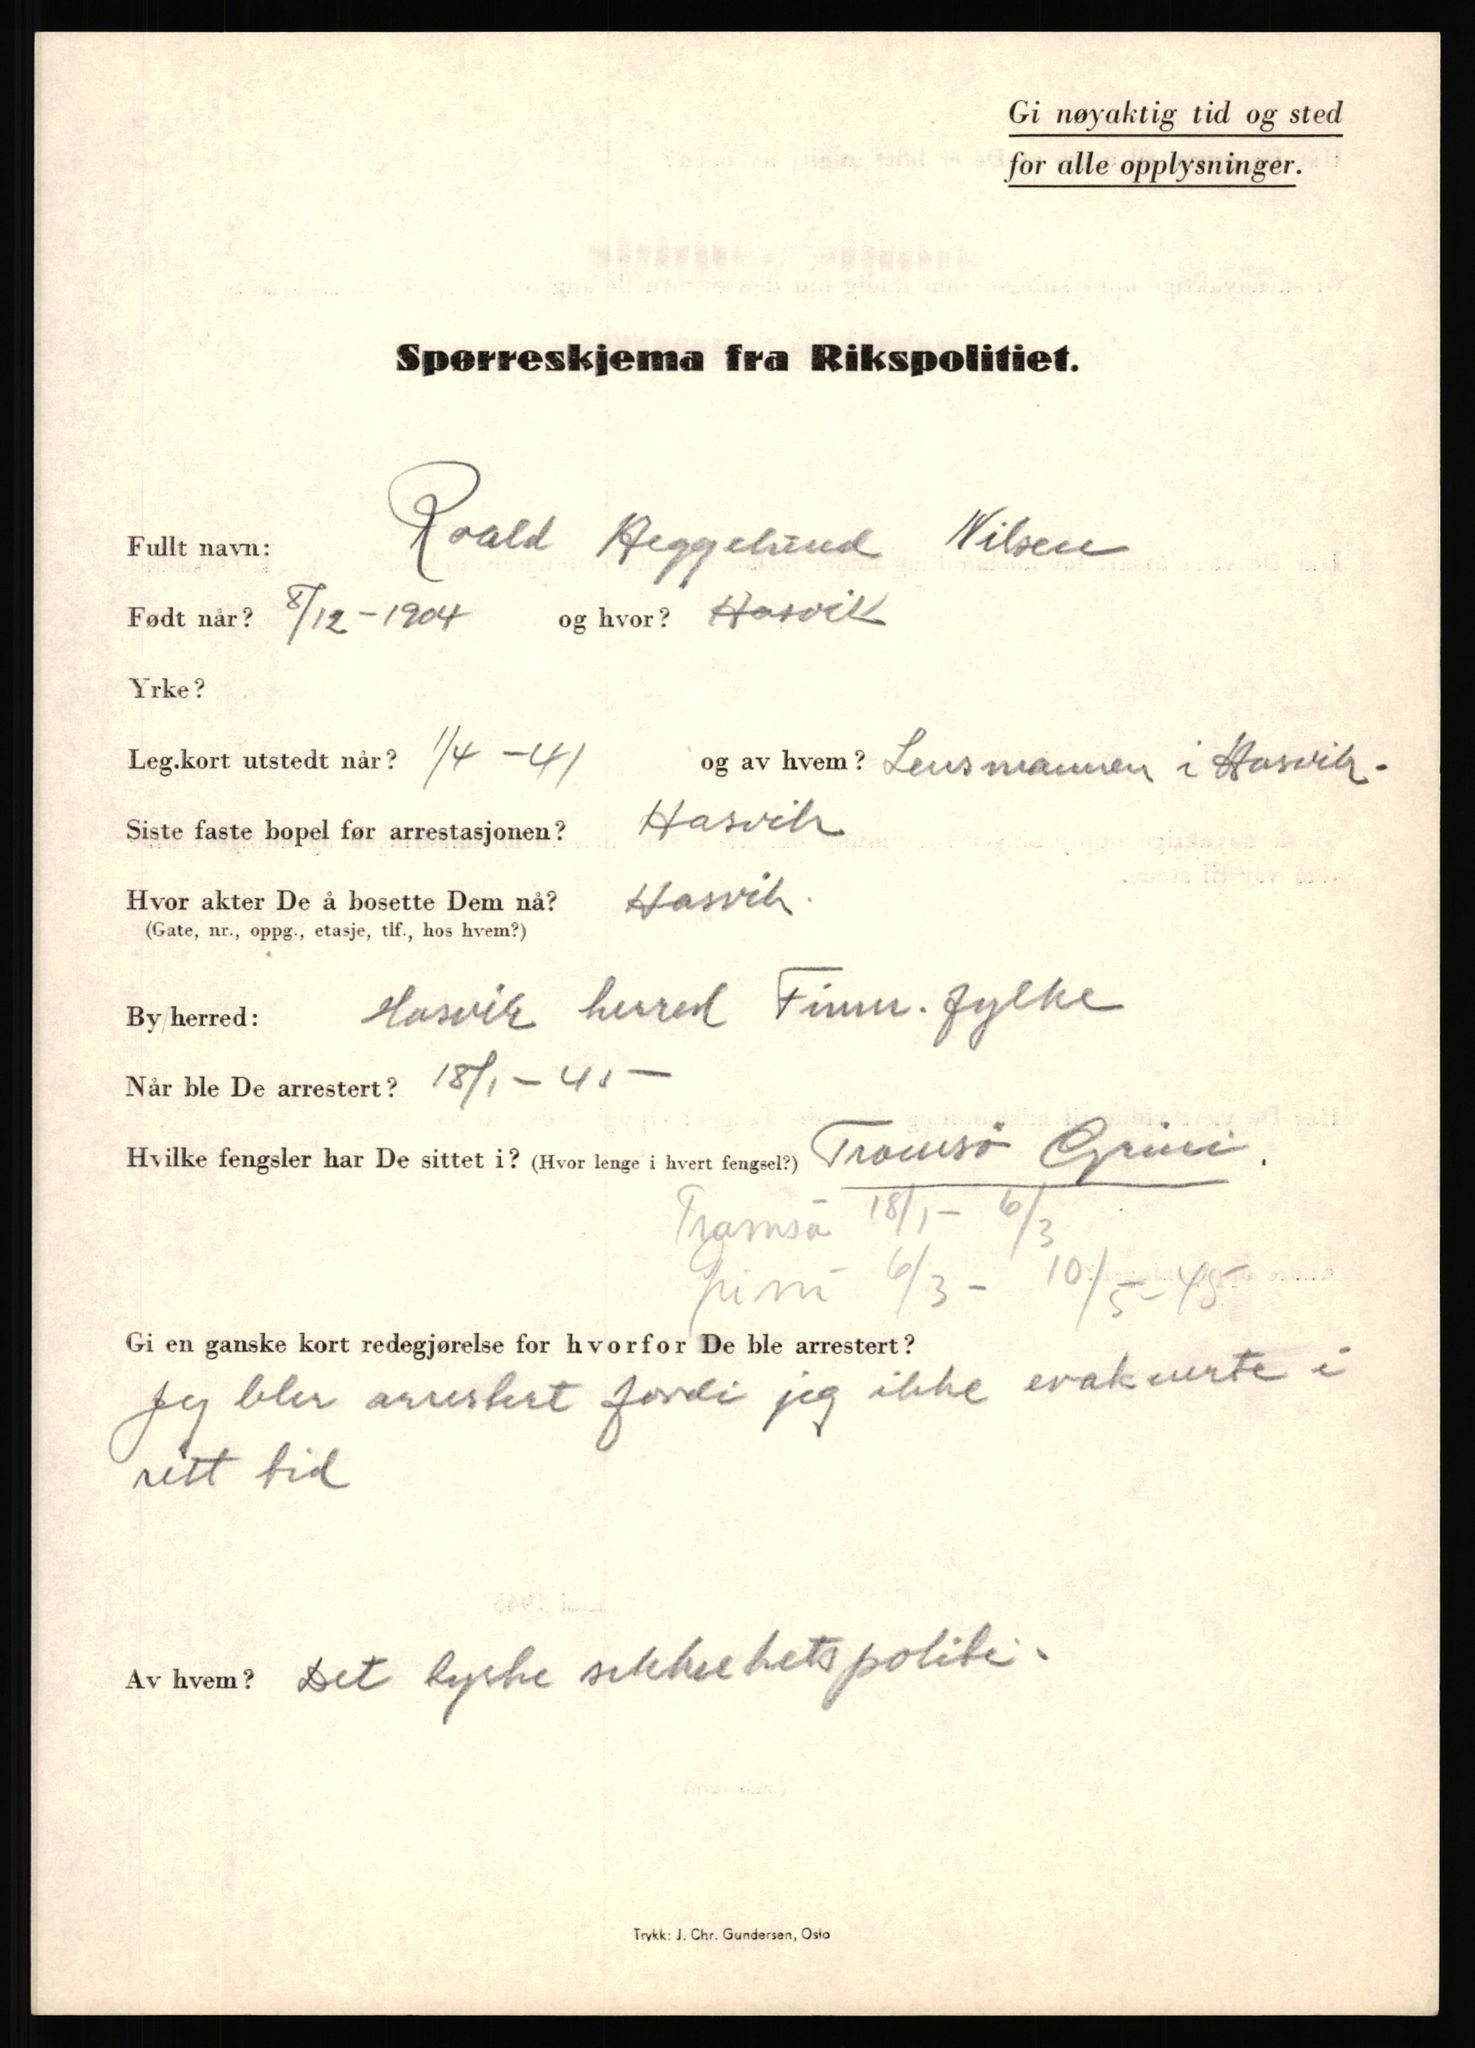 Gi nøyaktig tid og sted
for alle opplysninger.
Spørreskjema fra Rikspolitiet.
Fullt navn: Roald Heggelund Nilsen
Født når? 8/12-1904 og hvor? Hasvik
Yrke?
Leg.kort utstedt når? 1/4 -41 og av hvem? Lensmannen i Hasvik.
Siste faste bopel før arrestasjonen? Hasvik
Hvor akter De å bosette Dem nå? Hasvik.
(Gate, nr., oppg., etasje, tlf., hos hvem?)
By/herred: Hasvik herred Finnm. fylke
Når ble De arrestert? 18/1-45-
Hvilke fengsler har De sittet i? (Hvor lenge i hvert fengsel?) Tromsö Grini.
Tromsö 18/1- 6/3
Grini 6/3 - 10/5-45
Gi en ganske kort redegjørelse for hvorfor De ble arrestert?
Jeg blev arrestert fordi jeg ikke evakuerte i
rett tid
Av hvem? Det tyske sikkerhetspoliti.
Trykk: J. Chr. Gundersen, Oslo